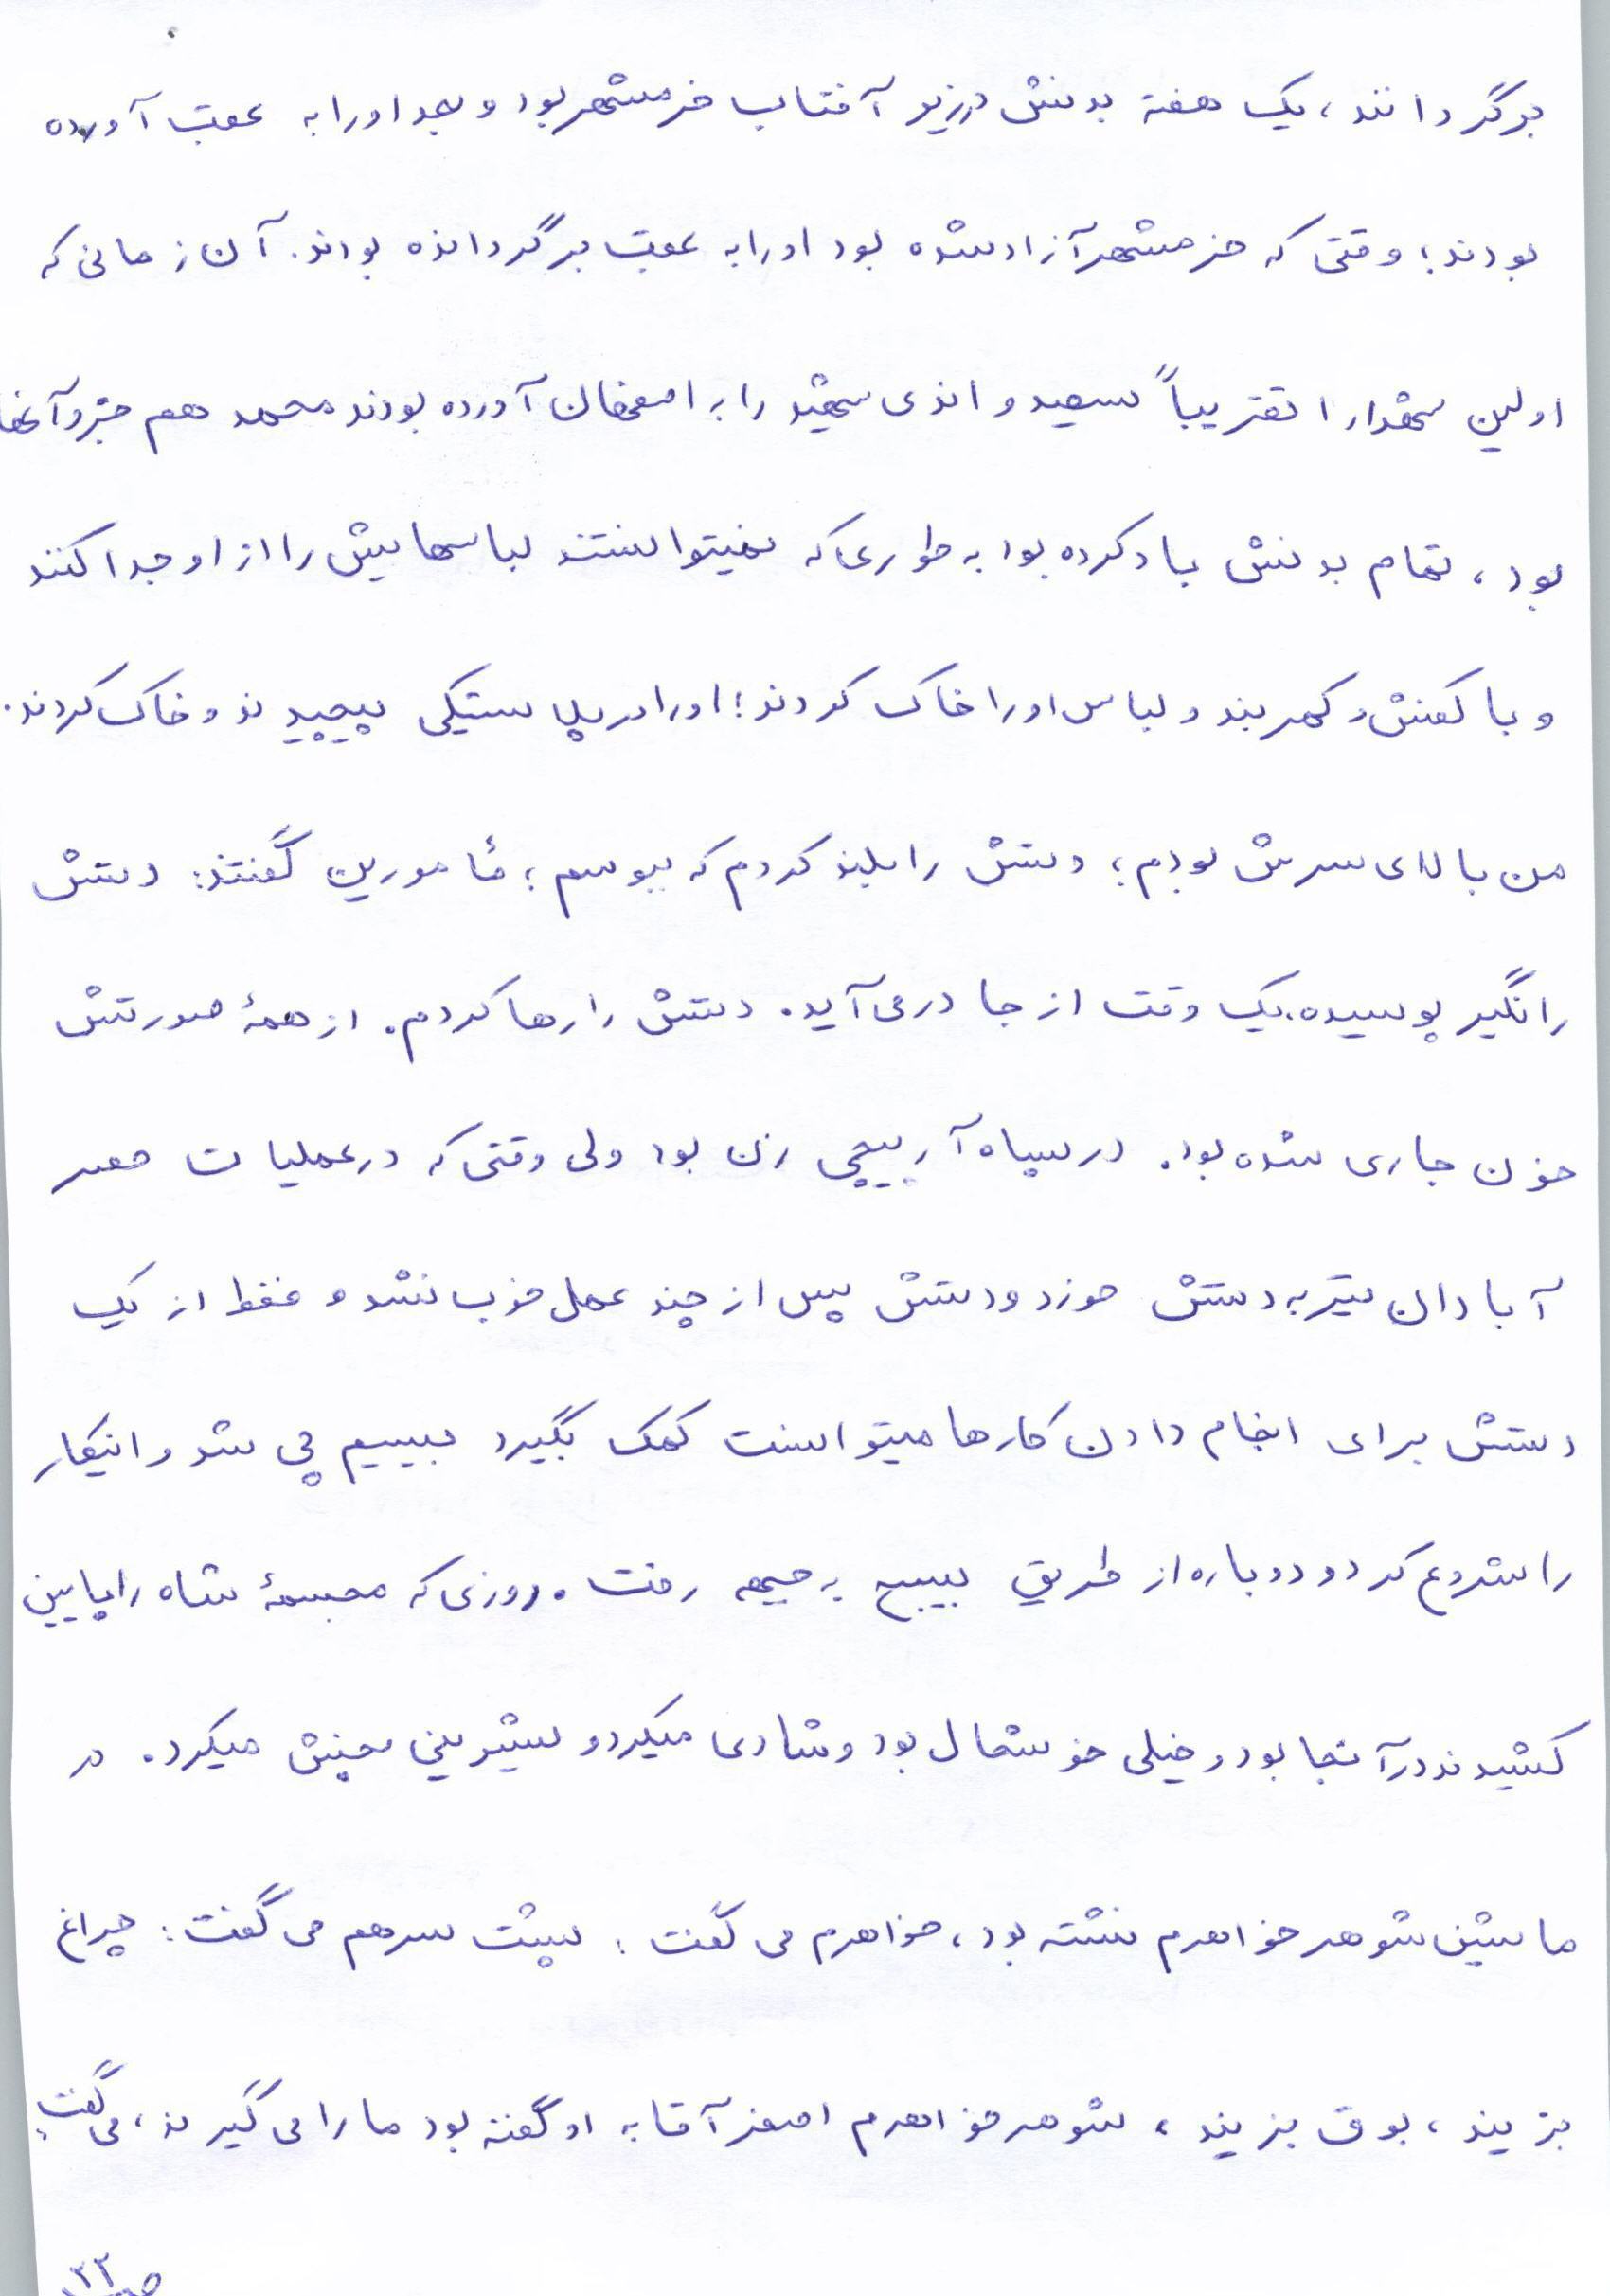 برگردانند، یک هفته بدنش درزیر آفتاب خرمشهر بود و بعد او را به عقب آورده
بودند؛ وقتی که خرمشهر آزاد شده بود او را به عقب برگردانده بودند. آن زمانی که
اولین شهدا را تقریباً سیصد و اندی شهید را به اصفهان آورده بودند محمد هم جزو آنها
بود، تمام بدنش باد کرده بود به طوری که نمیتوانستند لباسهایش را از او جدا کنند
و با کفش و کمربند و لباس او را خاک کردند؛ او را در پلاستیکی پیچیدند و خاک کردند.
من بالای سرش بودم؛ دستش را بلند کردم که ببوسم؛ مأمورین گفتند: دستش
را نگیر پوسیده، یک وقت از جا درمی‌آید. دستش را رها کردم. از همهٔ صورتش
خون جاری شده بود. در سپاه آرپیچی زن بود ولی وقتی که در عملیات حصر
آبادان تیر به دستش خورد و دستش پس از چند عمل خوب نشد و فقط از یک
دستش برای انجام دادن کارها میتوانست کمک بگیرد بیسیم چی شد و اینکار
را شروع کرد و دوباره از طریق بسیج به جبهه رفت. روزی که مجسمهٔ شاه را پایین
کشیدند در آنجا بود و خیلی خوشحال بود و شادی میکرد و شیرینی پخش میکرد. در
ماشین شوهر خواهرم نشسته بود، خواهرم می گفت: پشت سر هم می گفت: چراغ
بزنید، بوق بزنید، شوهر خواهرم اصغر آقا به او گفته بود ما را می گیرند، می گفت:
ص ۱۳۲